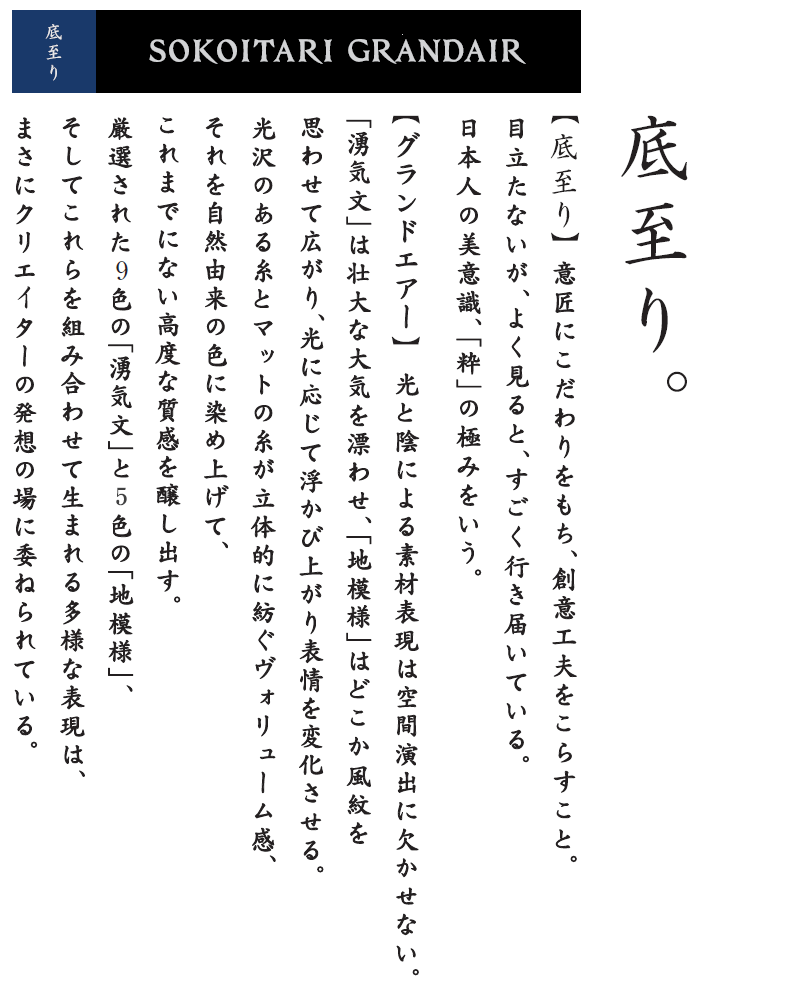 底至り
SOKOITARI GRANDAIR
底至り。
【底至り】意匠にこだわりをもち、創意工夫をこらすこと。
目立たないが、よく見ると、すごく行き届いている。
日本人の美意識、「粋」の極みをいう。
【グランドエアー】光と陰による素材表現は空間演出に欠かせない。
「湧気文」は壮大な大気を漂わせ、「地模様」はどこか風紋を
思わせて広がり、光に応じて浮かび上がり表情を変化させる。
光沢のある糸とマットの糸が立体的に紡ぐヴォリューム感、
それを自然由来の色に染め上げて、
これまでにない高度な質感を醸し出す。
厳選された9色の「湧気文」と5色の「地模様」、
そしてこれらを組み合わせて生まれる多様な表現は、
まさにクリエイターの発想の場に委ねられている。